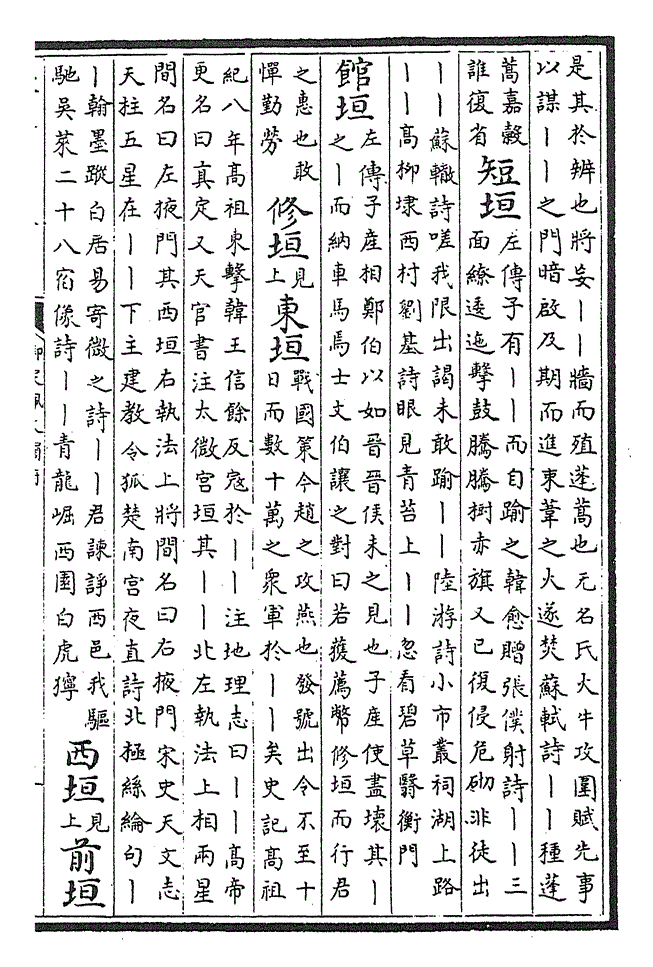 是其於辨也將妄丨丨牆而殖蓬蒿也无名氏火牛攻圍賦先事
以謀丨丨之門暗啟及期而進束葦之火遂焚蘇軾詩丨丨種蓬
蒿嘉穀
誰復省
短垣
左傳子有丨丨而自踰之韓愈贈張僕射詩丨丨三
面繚逶迤擊鼓騰騰樹赤旗又已復侵危砌非徒出
丨丨蘇轍詩嗟我限出謁未敢踰丨丨陸游詩小市叢祠湖上路
丨丨髙柳埭西村劉基詩眼見青苔上丨丨忽看碧草翳衡門
館垣
左傳子產相鄭伯以如晉晉侯未之見也子產使盡壞其丨
之丨而納車馬馬士文伯讓之對曰若獲薦幣修垣而行君
之惠也敢
憚勤勞
修垣
見
上
東垣
戰國策今趙之攻燕也發號出令不至十
日而數十萬之衆軍於丨丨矣史記髙祖
紀八年髙祖東擊韓王信餘反寇於丨丨注地理志曰丨丨髙帝
更名曰真定又天官書注太微宫垣其丨丨北左執法上相兩星
間名曰左掖門其西垣右執法上將間名曰右掖門宋史天文志
天柱五星在丨丨下主建教令狐楚南宫夜直詩北極絲綸句丨
丨翰墨蹤白居易寄微之詩丨丨君諫諍西邑我驅
馳吳萊二十八宿像詩丨丨青龍崛西圉白虎獰
西垣
見
上
前垣